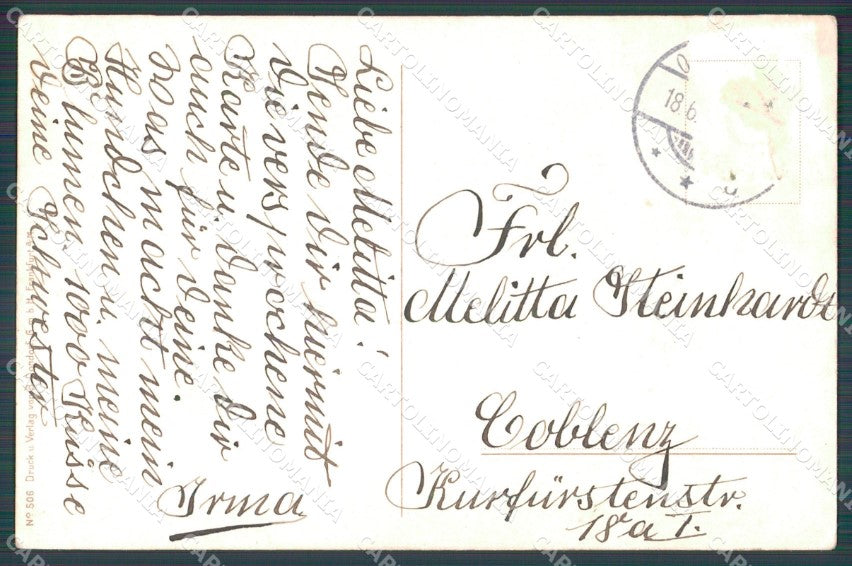 Liebe Melitta!
Sende dir hiermit
die versprochene
Karte u. danke dir
auch für deine.
was macht mein
Hündchen u. meine
Blumen, 1000 Küsse
deine Schwester
Irma
Frl.
Melitta Steinhardt
Coblenz
Kurfürstenstr.
18a I.
18.6.
No 506 Druck u Verlag von
CARTOLINOMANIA